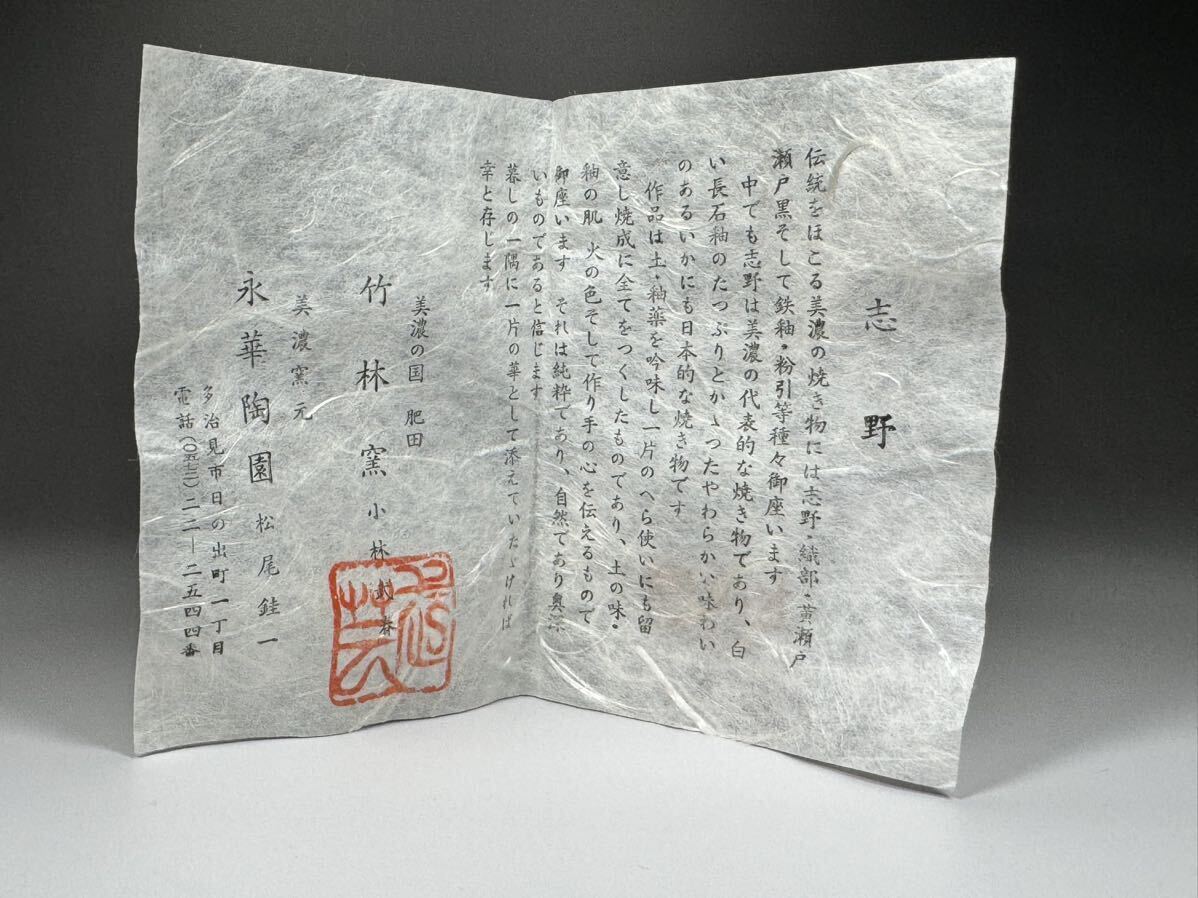 志野
伝統をほこる美濃の焼き物には志野・織部・黄瀬戸
瀬戸黒そして鉄釉・粉引等種々御座います
中でも志野は美濃の代表的な焼き物であり、白
い長石釉のたっぷりとかゝったやわらかい味わい
のあるいかにも日本的な焼き物です
作品は土・釉薬を吟味し一片のへら使いにも留
意し焼成に全てをつくしたものであり、土の味・
釉の肌 火の色そして作り手の心を伝えるもので
御座います それは純粋であり、自然であり奥深
いものであると信じます
暮しの一隅に一片の華として添えていたゞければ
幸と存します
美濃の国 肥田
竹林窯 小林武春
美濃窯元
永華陶園 松尾銈一
多治見市日の出町一丁目
電話(〇五七二)二二―二五四四番